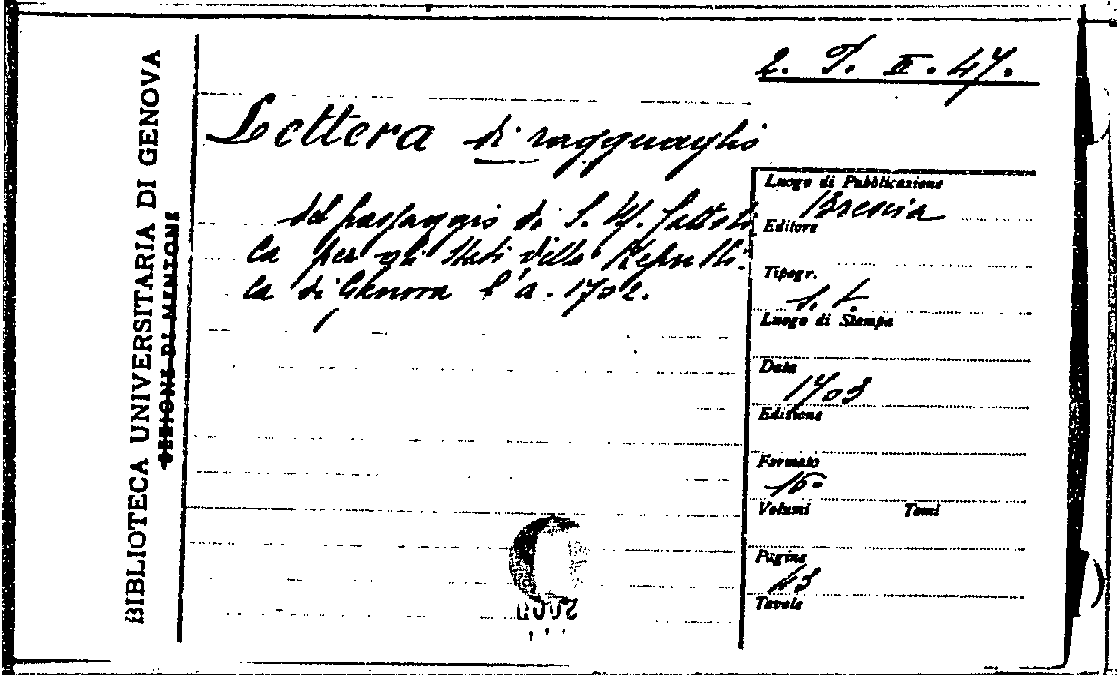 2. T. II. 47.
BIBLIOTECA UNIVERSITARIA DI GENOVA
SEZIONE DI MENTONE
Lettera di ragguaglio
del passaggio di S. M. Cattoli
ca per gli Stati della Repubbli-
ca di Genova l'a. 1702.
Luogo di Pubblicazione
Brescia
Editore
Tipogr.
s. t.
Luogo di Stampa
Data
1703
Edizione
Formato
16°
Volumi Tomi
Pagine
Tavole